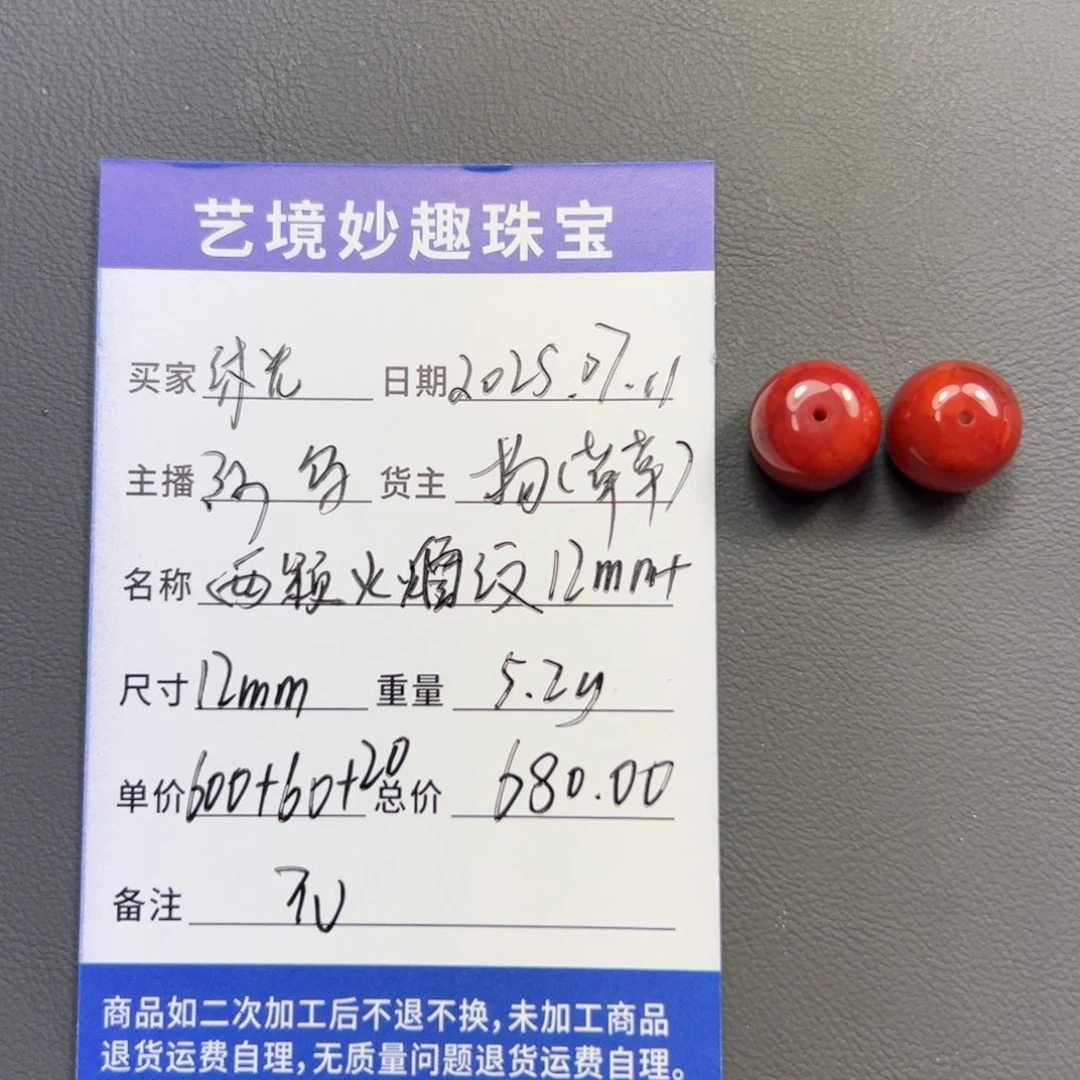 艺境妙趣珠宝
买家 日期 2025.07.11
主播 货主 杨(草草)
名称 两颗火焰纹12mm+
尺寸 12mm 重量 5.2g
单价 600+60+20 总价 680.00
备注 孔
商品如二次加工后不退不换,未加工商品
退货运费自理,无质量问题退货运费自理。